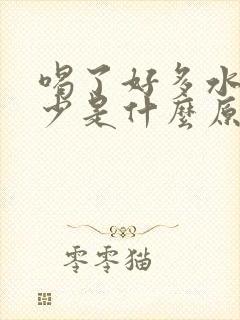 喝了好多水
少是什麼原
零零猫